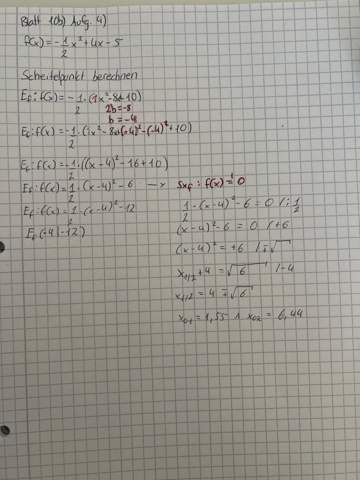 Blatt 10b) Aufg. 4)
f(x) = -1/2 x² + 4x - 5
Scheitelpunkt berechnen
Ef: f(x) = -1/2 · (1x² - 8x + 10)
2b = -8
b = -4
Ef: f(x) = -1/2 · (1x² - 8x + (-4)² - (-4)² + 10)
Ef: f(x) = -1/2 · ((x-4)² - 16 + 10)
Ef: f(x) = 1/2 · (x-4)² - 6 →
Ef: f(x) = 1/2 · (x-4)² - 12
Ef (-4 | -12)
Sxf: f(x) = 0
1/2 · (x-4)² - 6 = 0 /: 1/2
(x-4)² - 6 = 0 /+6
(x-4)² = +6 /±√
x1/2 + 4 = √6 /-4
x1/2 = 4 ∓ √6
x01 = 1,55 ∧ x02 = 6,44